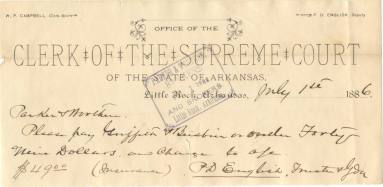 W. P. CAMPBELL
P. D. ENGLISH
OFFICE OF THE
CLERK OF THE SUPREME COURT
OF THE STATE OF ARKANSAS,
Little Rock, Arkansas, July 1st 1886
Parker & Worthen
Please pay or order Forty
Nine Dollars, and Charge to
$49.00 (Insurance) P D English,